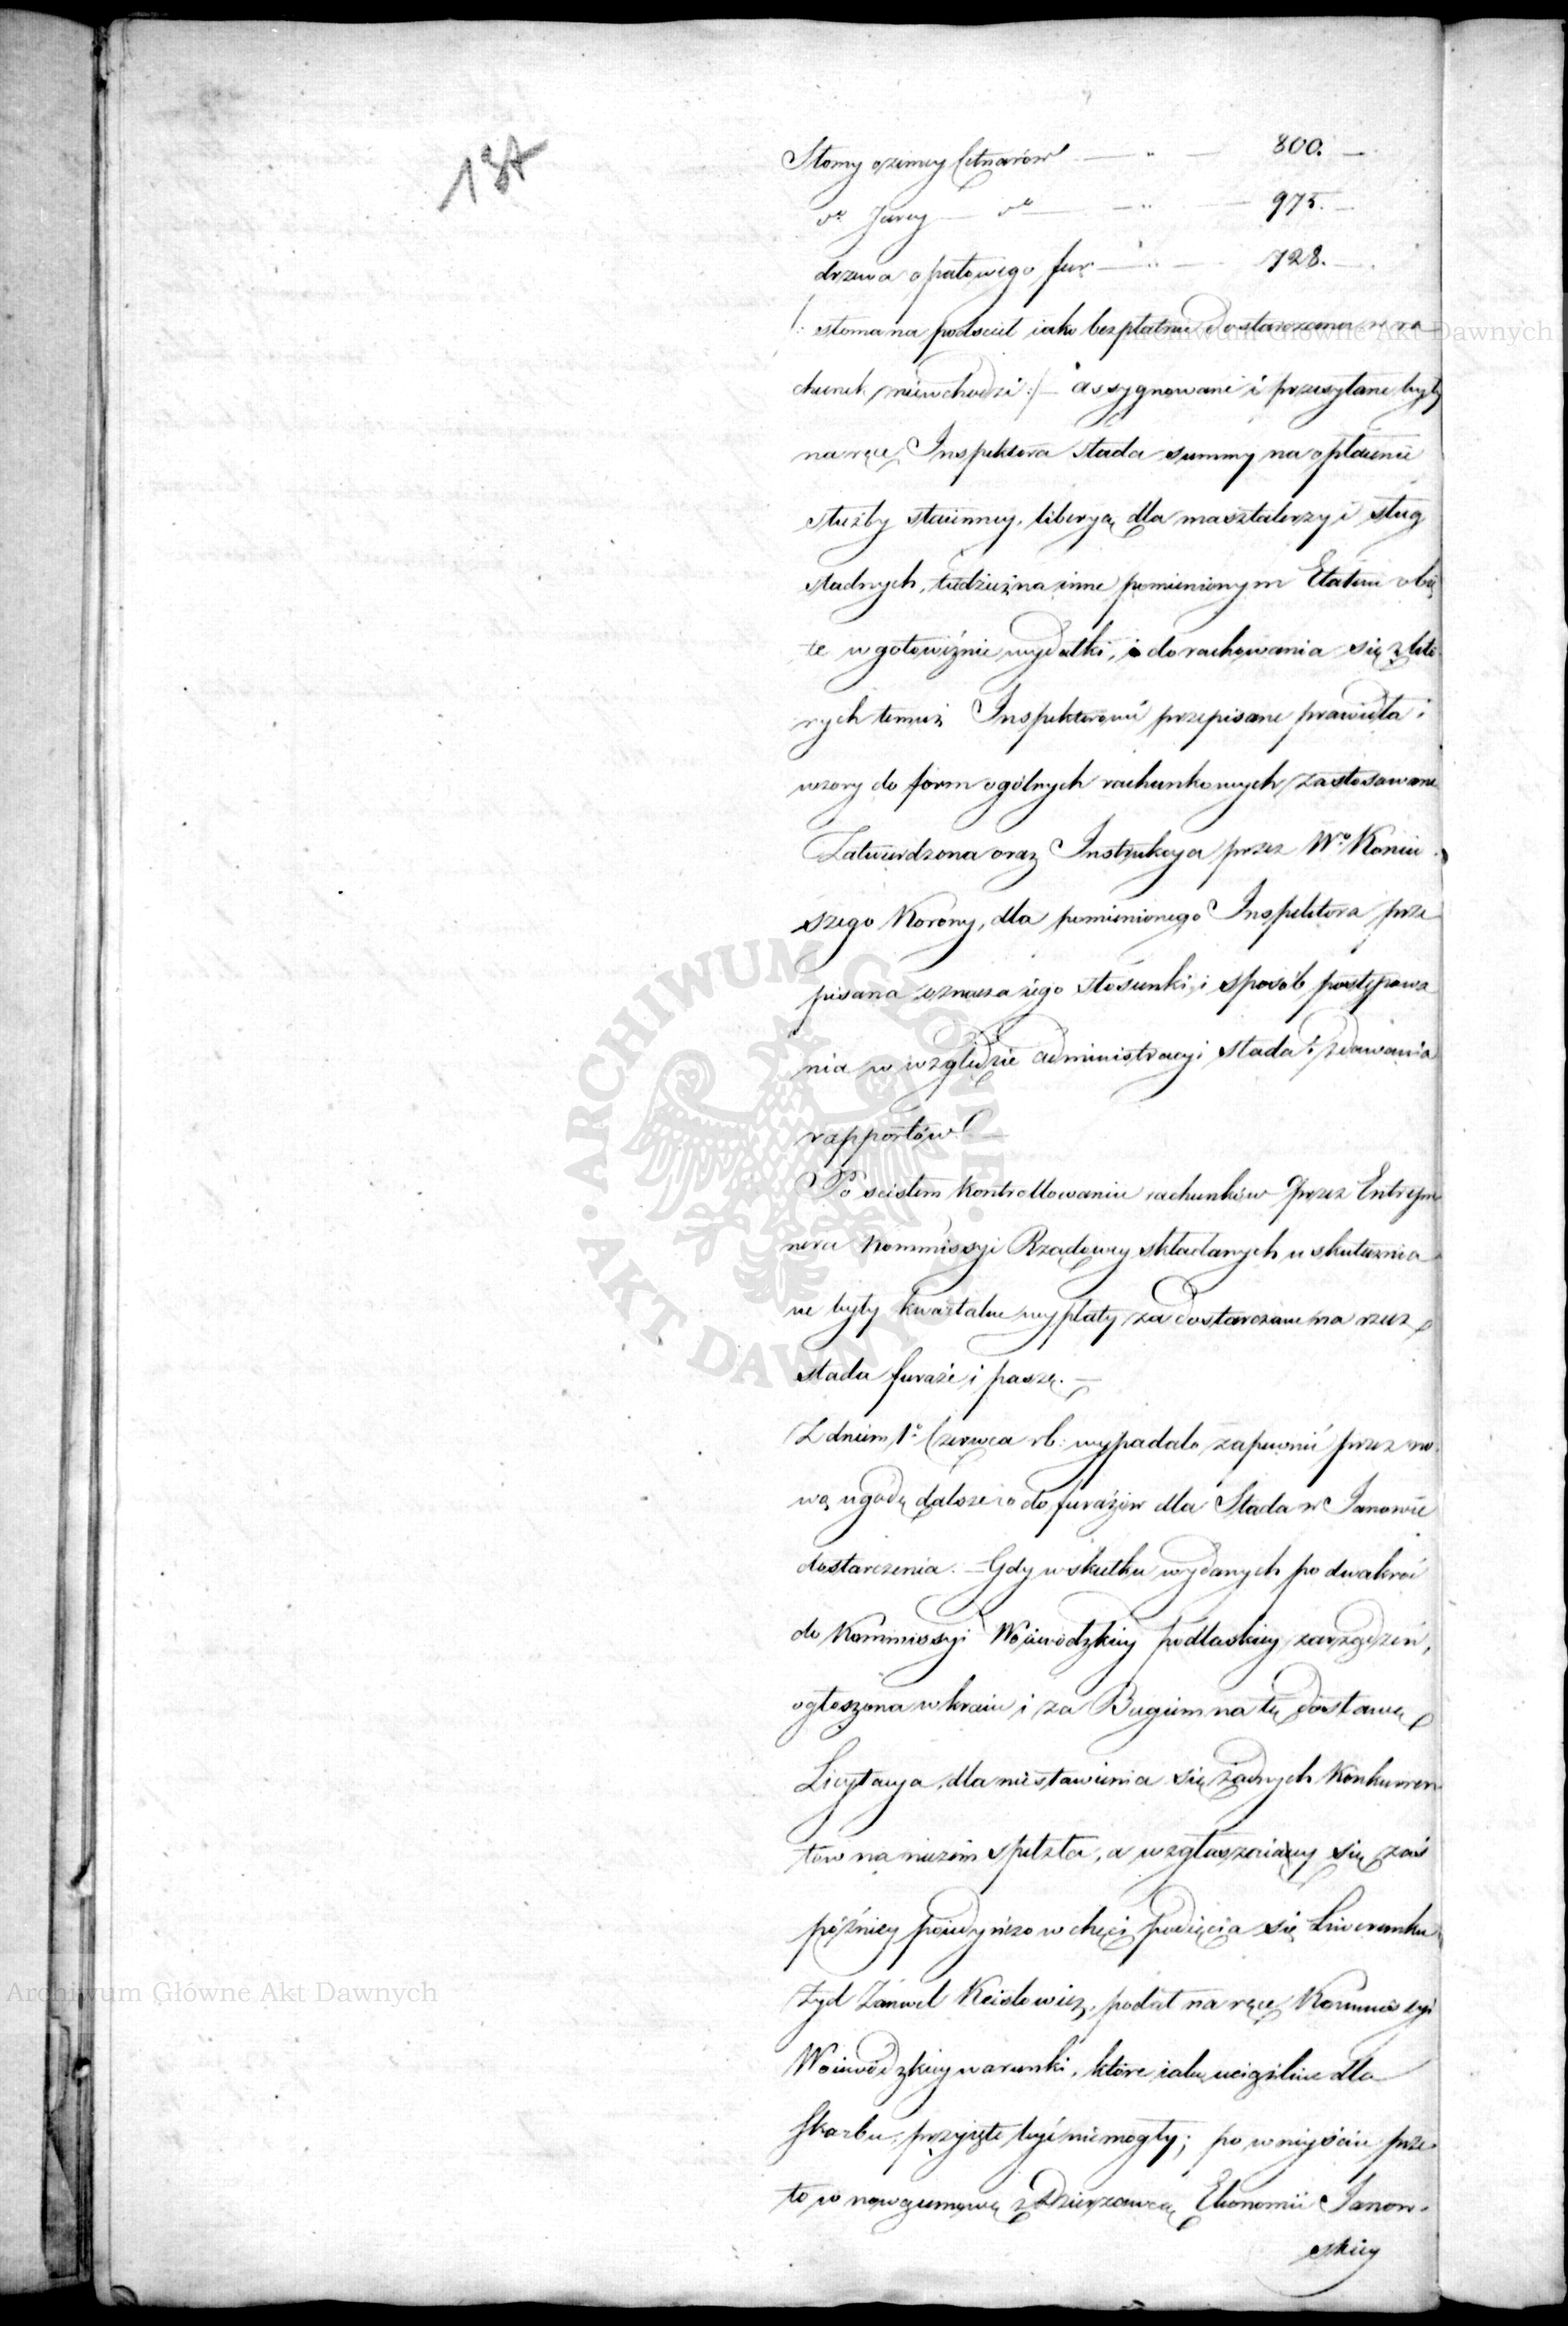 137
Słomy ozimey Cetnarów — " — 800. —
do Jarey — do — " — 975. —
drzewa opałowego fur — " — 728. —
/: słoma na podściel iako bezpłatnie dostarczana w ra
chunek niewchodzi :/ — assygnowane i przesyłane były
na ręce Inspektora stada summy na opłacenie
służby staienney, liberyą dla masztalerzy i sług
stadnych, tudzież na inne pomienionym Etatem obię
te w gotowiźnie wydatki, i do rachowania się z któ
rych temuż Inspektorowi przepisane prawidła i
wzory do form ogólnych rachunkowych zastosowane
Zatwierdzona oraz Instrukcya przez Wo Koniu
szego Korony, dla pomienionego Inspektora prze
pisana oznacza iego stosunki i sposób postępowa
nia w względzie administracyi stada i zdawania
rapportów. —
Po scisłem kontrollowaniu rachunków przez Entrepre
nera Kommissyi Rządowey składanych uskutecznia
ne były kwartalne wypłaty za dostarczane na rzecz
stada furaże i paszę. —
Z dniem 1o Czerwca rb: wypadało zapewnić przez no
wą ugodę dalsze co do furażów dla Stada w Janowie
dostarczenia. — Gdy w skutku wydanych po dwakroć
do Kommissyi Woiewódzkiey podlaskiey zarządzeń,
ogłoszona w kraiu i za Bugiem na tę dostawę
Licytacya, dla niestawienia się żadnych Konkurren
tów na niczém spełzła, a w zgłaszaiący się zaś
późniey poiedyńczo w chęci podięcia się Liwerunku
żyd Zanwel Keislowicz, podał na ręce Kommissyi
Woiewódzkiey warunki, które iako uciążliwe dla
Skarbu, przyięte być niemogły; po wniyściu prze
to w nową umowę z Dzierżawcą Ekonomii Janow-
skiey
Archiwum Główne Akt Dawnych
Archiwum Główne Akt Dawnych
ARCHIWUM GŁÓWNE · AKT DAWNYCH ·